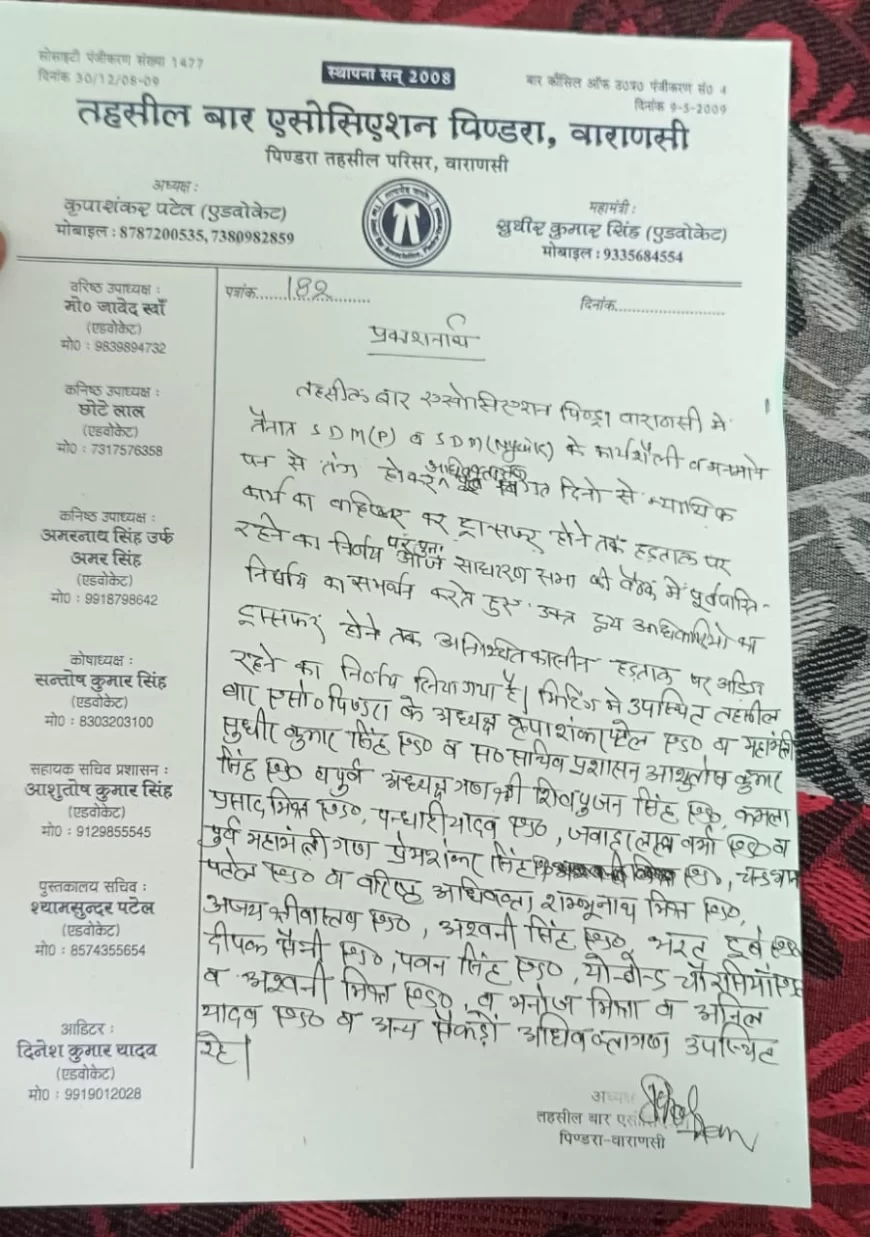 सोसाइटी पंजीकरण संख्या 1477
दिनांक 30/12/08-09
स्थापना सन् 2008
बार कौंसिल ऑफ उ०प्र० पंजीकरण सं० 4
दिनांक 9-5-2009
तहसील बार एसोसिएशन पिण्डरा, वाराणसी
पिण्डरा तहसील परिसर, वाराणसी
अध्यक्ष :
कृपाशंकर पटेल (एडवोकेट)
मोबाइल : 8787200535, 7380982859
महामंत्री :
सुधीर कुमार सिंह (एडवोकेट)
मोबाइल : 9335684554
वरिष्ठ उपाध्यक्ष :
मो० जावेद खाँ
(एडवोकेट)
मो० : 9839894732
कनिष्ठ उपाध्यक्ष :
छोटे लाल
(एडवोकेट)
मो० : 7317576358
कनिष्ठ उपाध्यक्ष :
अमरनाथ सिंह उर्फ
अमर सिंह
(एडवोकेट)
मो० : 9918798642
कोषाध्यक्ष :
सन्तोष कुमार सिंह
(एडवोकेट)
मो० : 8303203100
सहायक सचिव प्रशासन :
आशुतोष कुमार सिंह
(एडवोकेट)
मो० : 9129855545
पुस्तकालय सचिव :
श्यामसुन्दर पटेल
(एडवोकेट)
मो० : 8574355654
आडिटर :
दिनेश कुमार यादव
(एडवोकेट)
मो० : 9919012028
पत्रांक.....182..........
दिनांक.......................
प्रकाशनार्थ
तहसील बार एसोसिएशन पिण्ड्रा वाराणसी में
तैनात SDM(P) व SDM(न्यायिक) के कार्यशैली व मनमाने
पन से तंग होकर अधिवक्तागण विगत दिनो से न्यायिक
कार्य का वहिष्कार कर ट्रान्सफर होने तक हड़ताल पर
रहने का निर्णय पर पुनः आज साधारण सभा की बैठक में पूर्वपारित
निर्णय का समर्थन करते हुए उक्त द्वय अधिकारियो का
ट्रान्सफर होने तक अनिश्चितकालीन हड़ताल पर अडिग
रहने का निर्णय लिया गया है। मिटिंग मे उपस्थित तहसील
बार एसो० पिण्डरा के अध्यक्ष कृपाशंकर पटेल एड० व महामंत्री
सुधीर कुमार सिंह एड० व स० सचिव प्रशासन आशुतोष कुमार
सिंह एड० व पुर्व अध्यक्षगण श्री शिवपुजन सिंह एड०, कमला
प्रसाद मिश्र एड०, पन्धारी यादव एड०, जवाहरलाल वर्मा एड० व
पुर्व महामंत्री गण प्रेमशंकर सिंह एड०, चन्द्रभान
पटेल एड० व वरिष्ठ अधिवक्ता शम्भूनाथ मिश्र एड०,
अजय श्रीवास्तव एड०, अश्वनी सिंह एड०, दुबे एड०
दीपक सैनी एड०, पवन सिंह एड०, योगेन्द्र चौरसिया एड०
व अश्वनी मिश्र एड०, व मनोज मिश्रा व अनिल
यादव एड० व अन्य सैकड़ों अधिवक्तागण उपस्थित
रहे।
अध्यक्ष
तहसील बार एसोसिएशन
पिण्डरा-वाराणसी